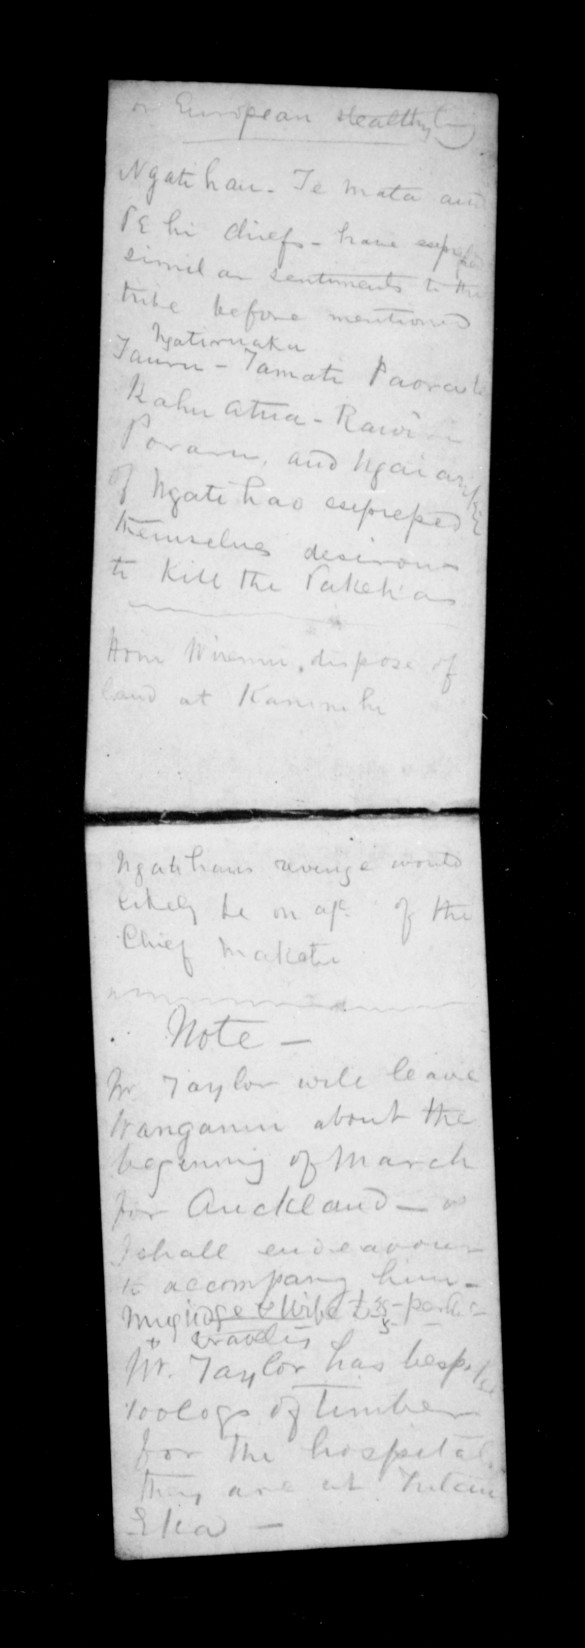 on European stealthy
Ngatihau - Te Mata and
PEhi chiefs - have expressed
similar sentiments to the
tribe before mentioned
Ngatiruaka
Tauru - Tamati Paora
Kahu Atua - Rawiri
and Ngai
of Ngatihao expressed
themselves desirous
to kill the Pakehas
Hori Wiremu, dispose of
land at
Ngatihaus revenge would
likely be on a/c of the
Chief Maketu
Note -
Mr Taylor will leave
Wanganui about the
beginning of March
for Auckland -
I shall endeavour
to accompany him -
& Wife
travelling
Mr. Taylor has bespoke
100 logs of timber
for the hospital.
they are at
Eka -